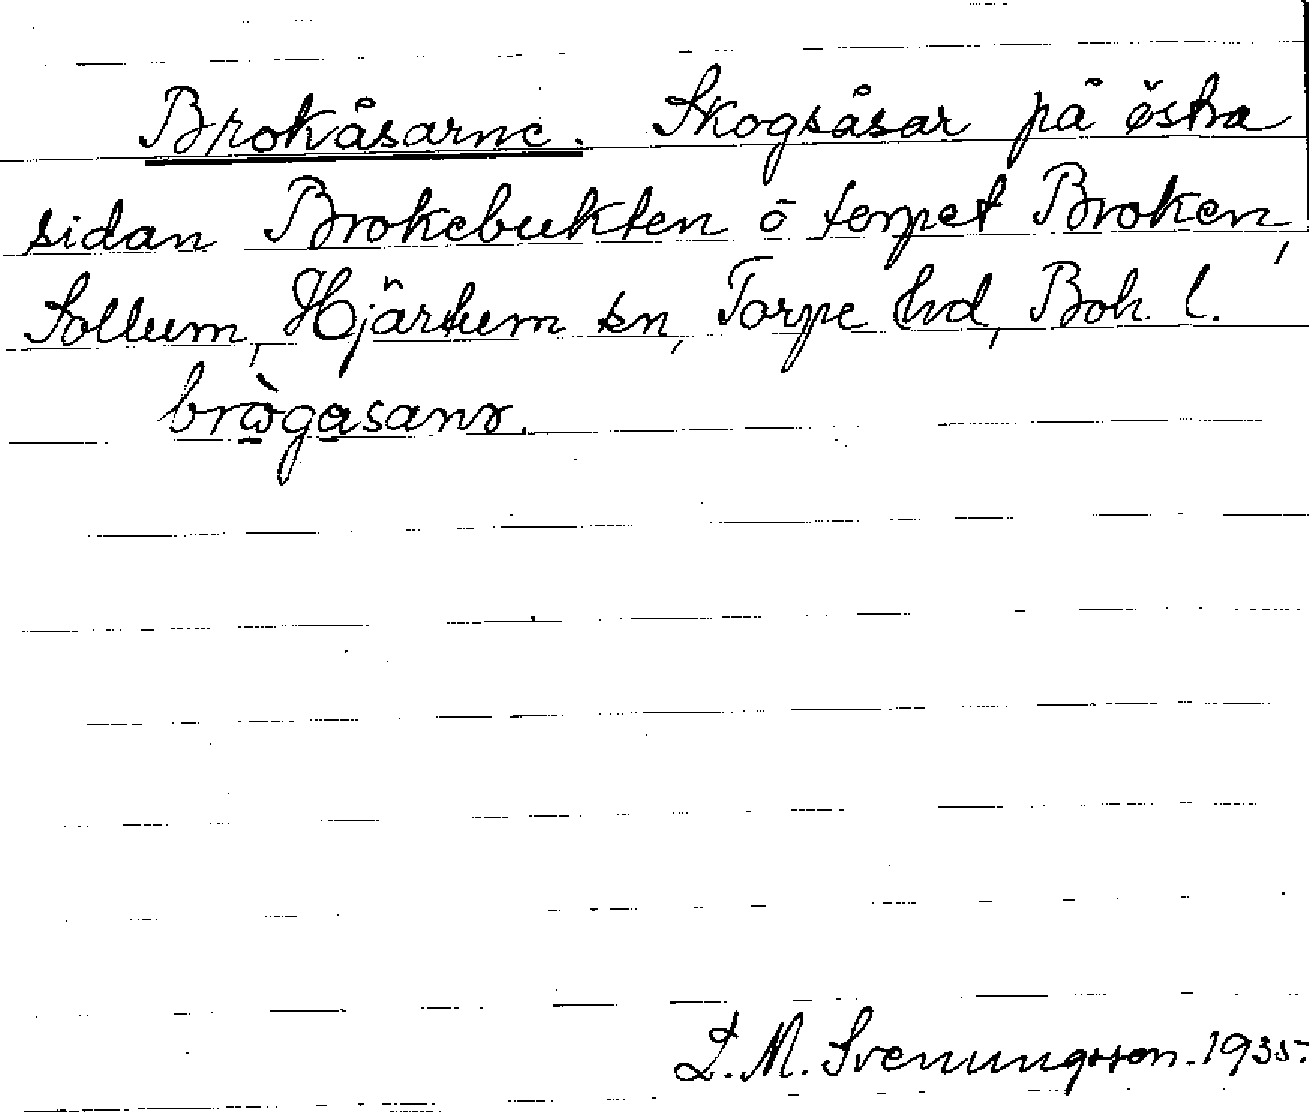 Brokåsarne. Skogsåsar på östra
sidan Brokebukten ö torpet Broken,
Sollum, Hjärtum sn, Torpe hd, Boh. l.
brògasanr.
L. M. Svenungsson. 1935.